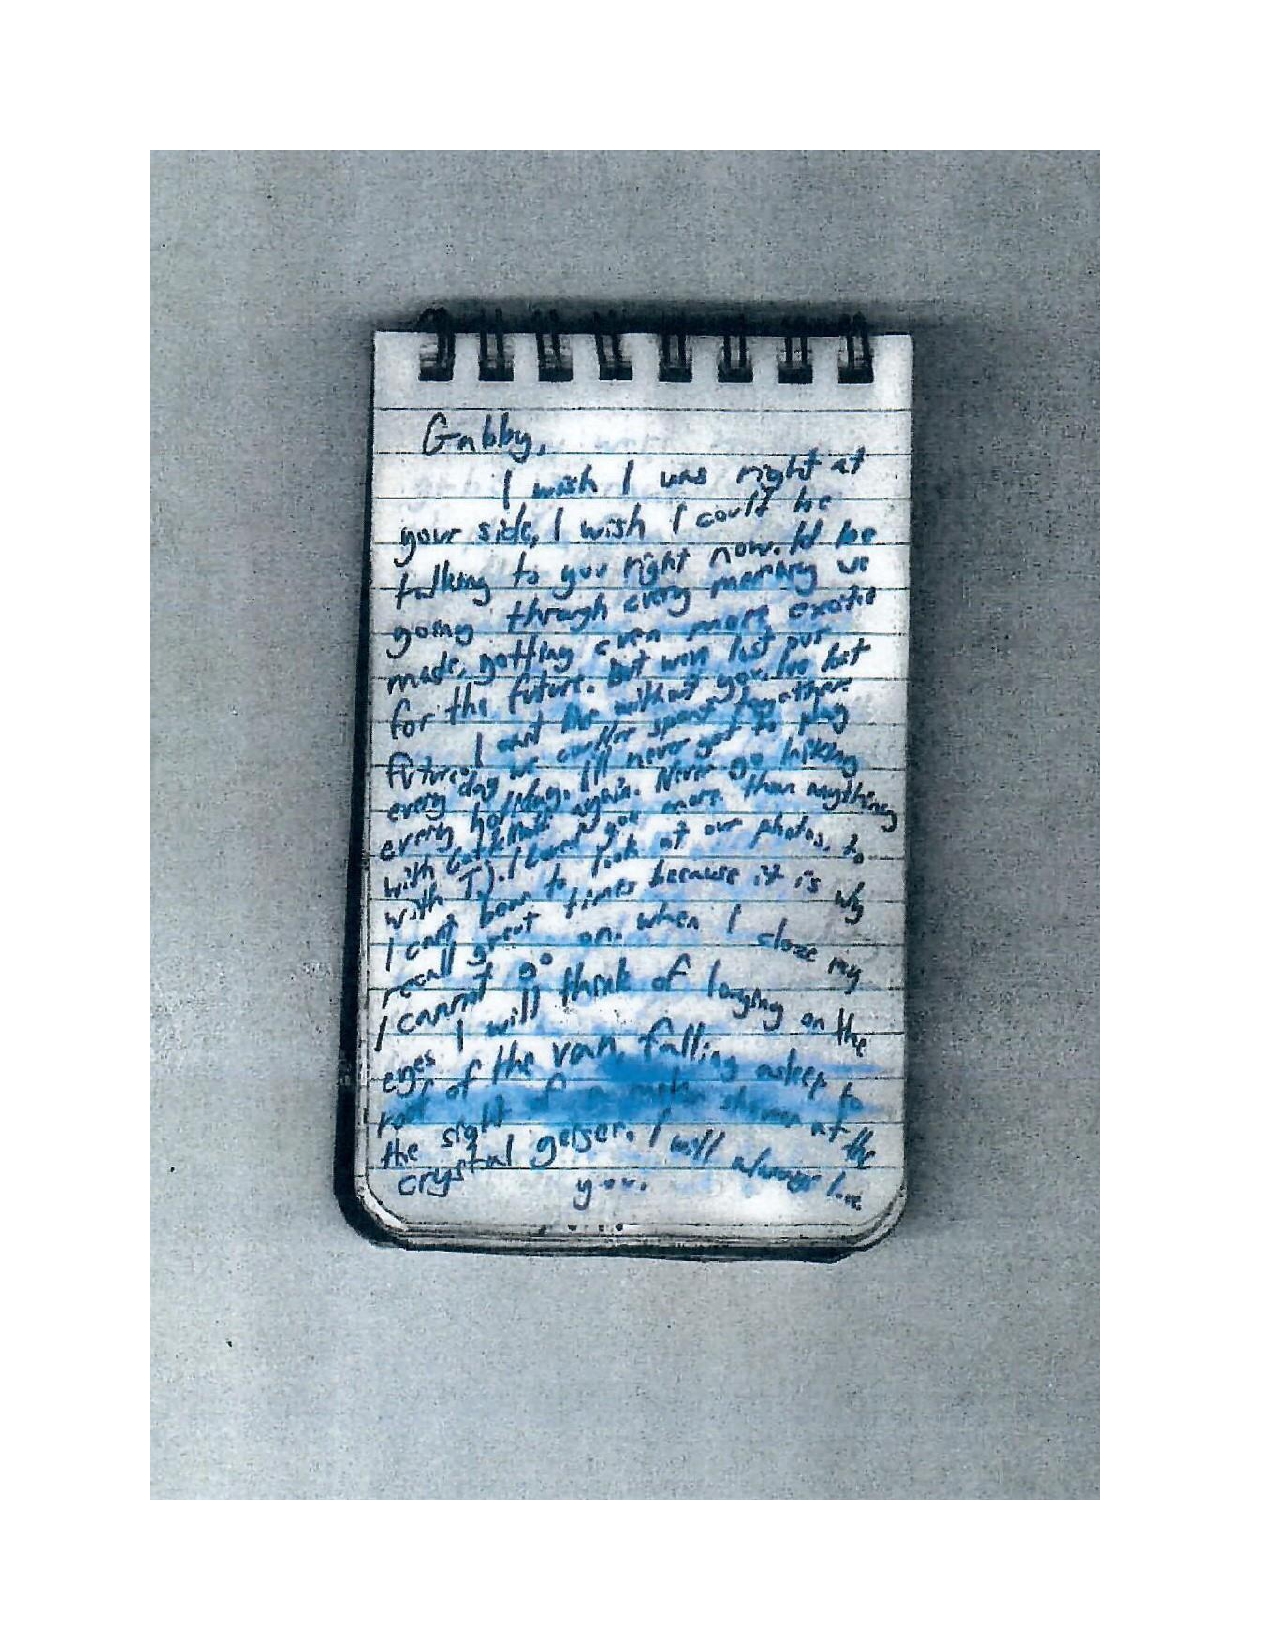 Gabby,
I wish I was right at
your side, I wish I could be
talking to you right now. Id be
going through every memory we
made, getting even more excited
for the future. But weve lost our
future. I cant live without you. Ive lost
every day we could've spent together
every holiday. I'll never get to play
with again. Never go hiking
with TJ. I loved you more than anything
I cant bear to look at our photos, to
recall great times because it is why
I cannot go on. when I close my
eyes I will think of laughing on the
roof of the van, falling asleep to
the sight of at the
crystal geiser. I will always love
you.